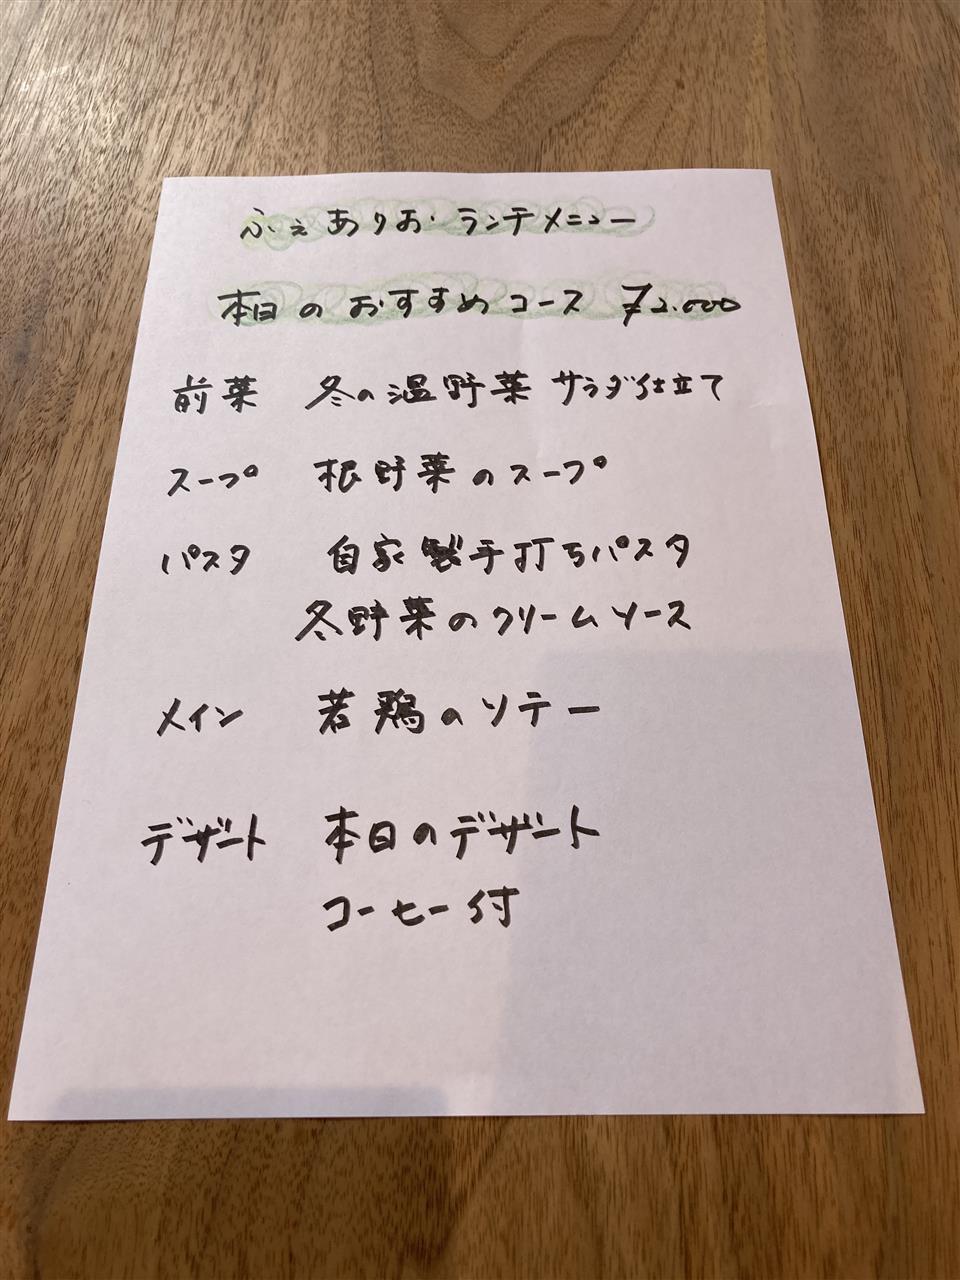 ふぇありお ランチメニュー
本日のおすすめコース ¥2.000
前菜 冬の温野菜 サラダ仕立て
スープ 根野菜のスープ
パスタ 自家製手打ちパスタ
冬野菜のクリームソース
メイン 若鶏のソテー
デザート 本日のデザート
コーヒー付